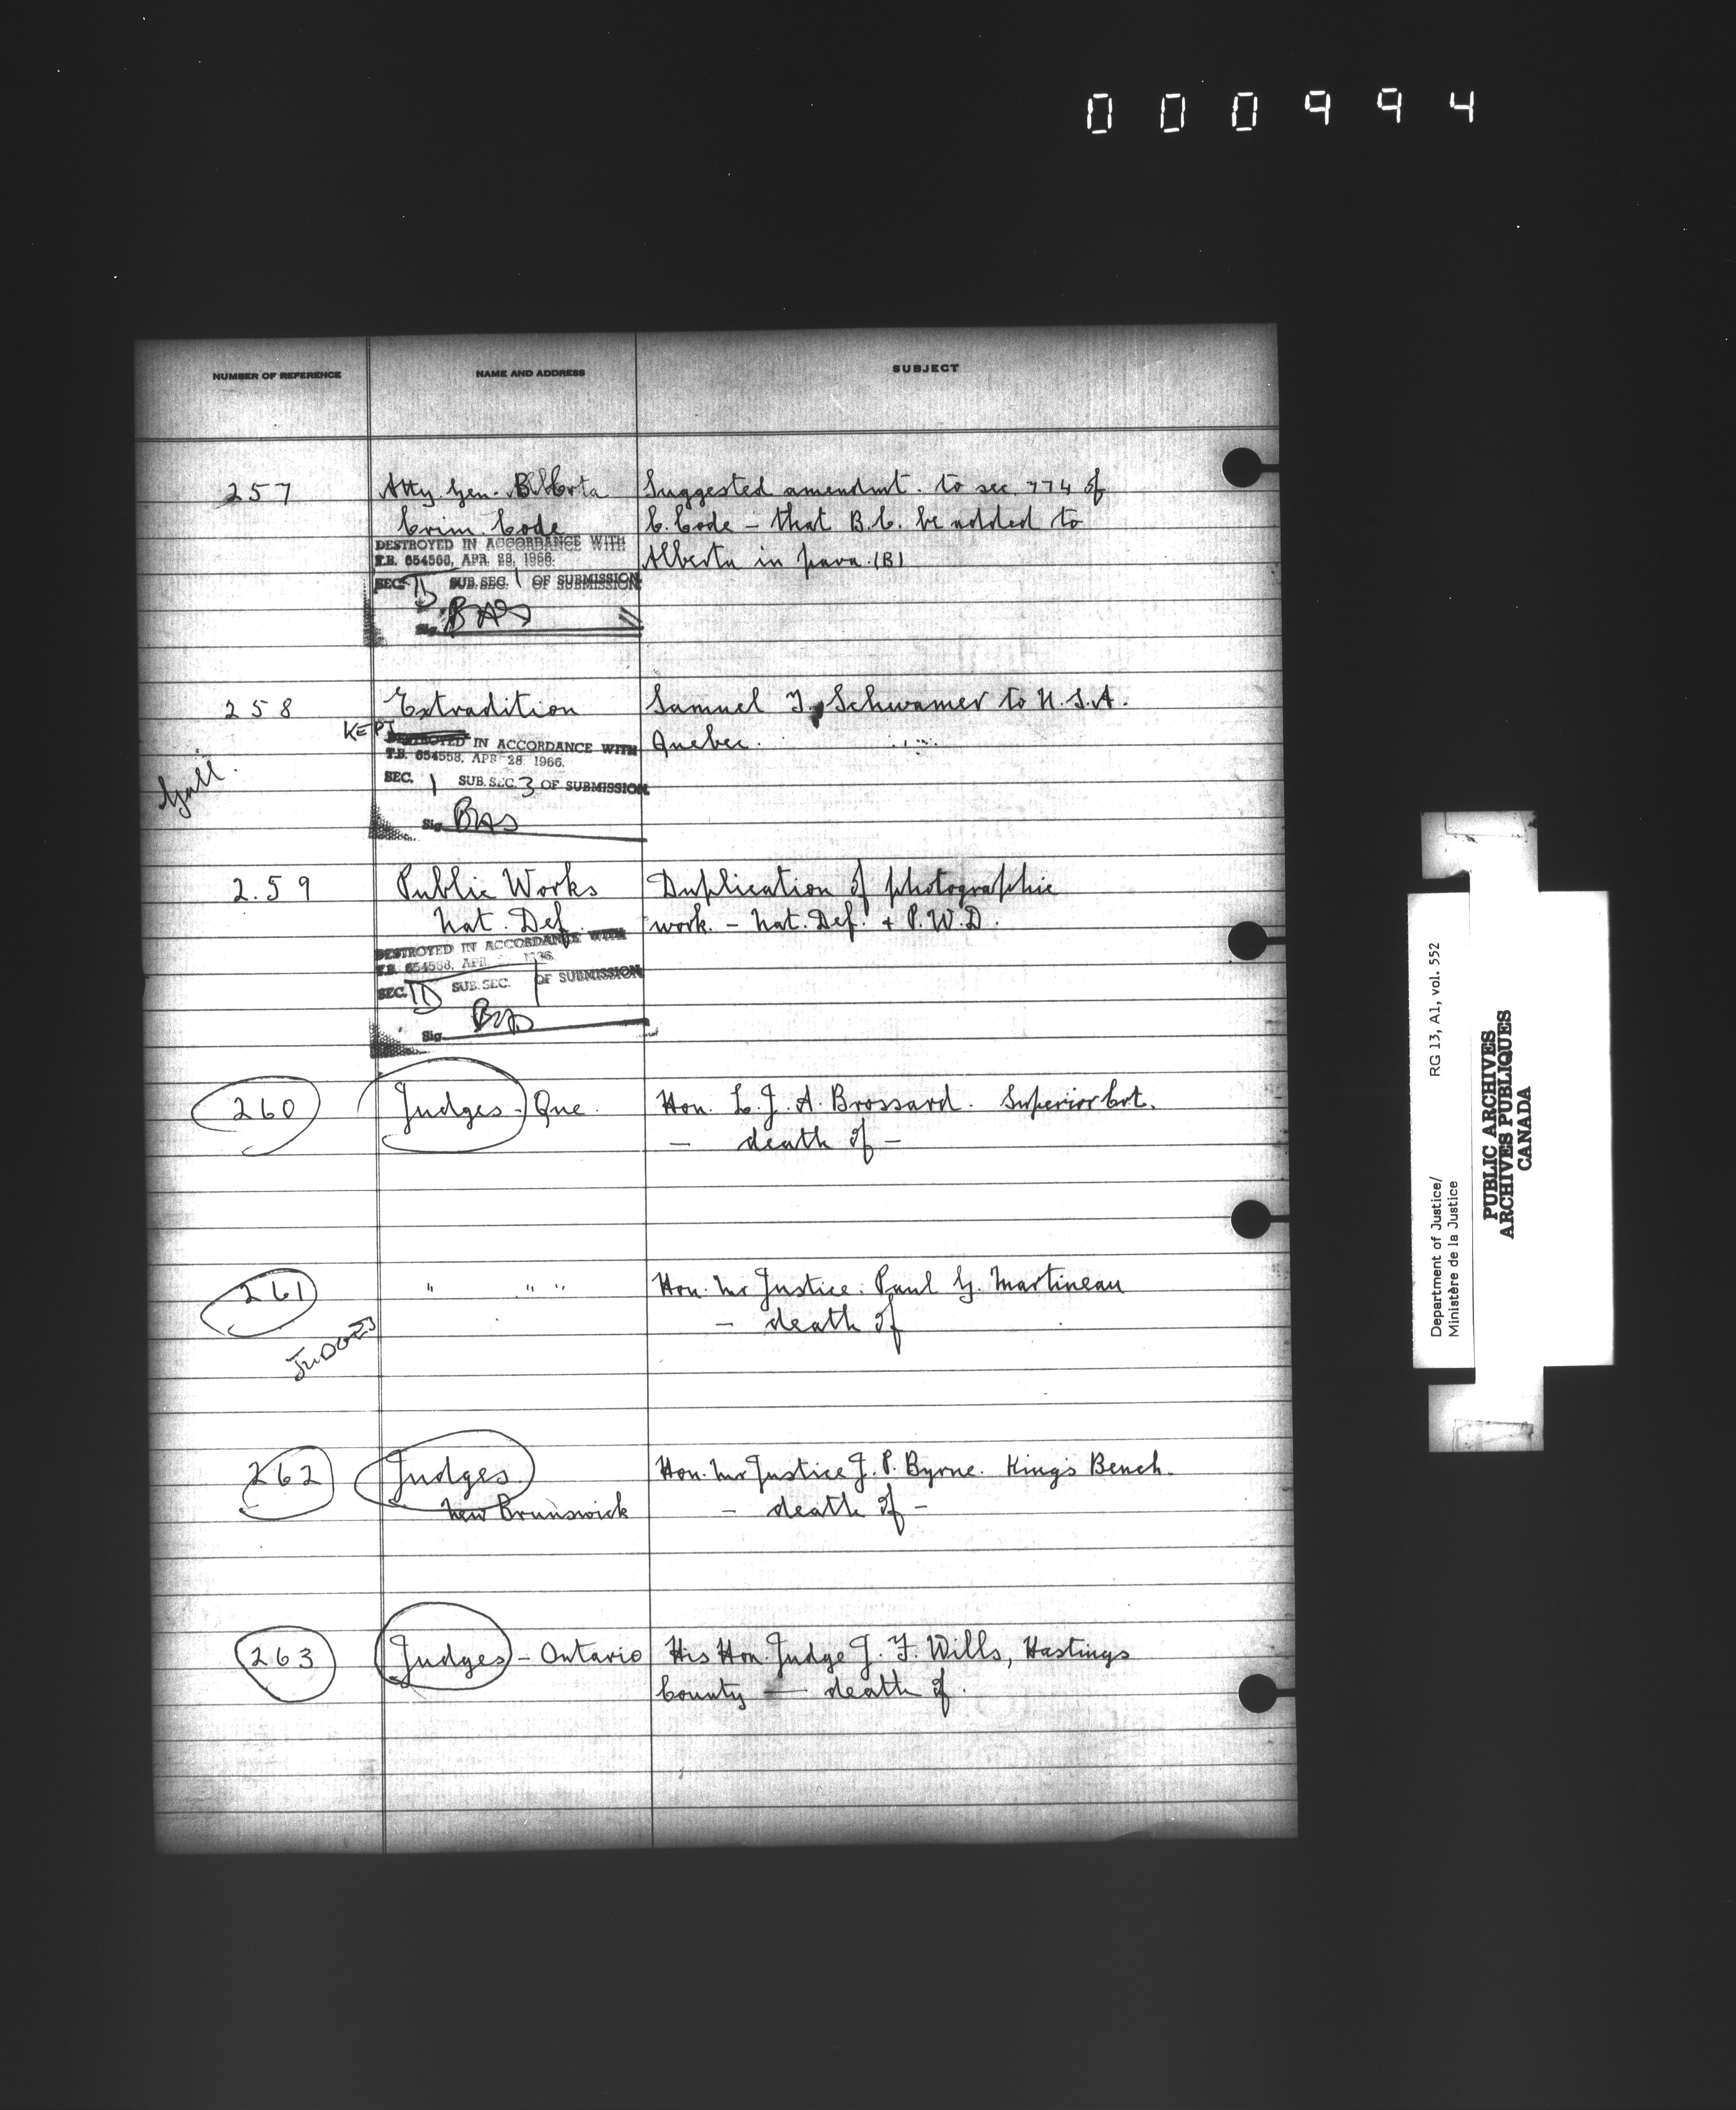 000994
NUMBER OF REFERENCE NAME AND ADDRESS SUBJECT
257 Atty. Gen. Alberta Suggested amendmt. to sec. 774 of
Crim Code C. Code – that B.C. be added to
DESTROYED IN ACCORDANCE WITH
T.B. 654558, APR. 28, 1966. Alberta in para. (B)
SEC. SUB. SEC. 1 OF SUBMISSION
Sig. BAS
258 Extradition Samuel Schwamer to U.S.A.
KEPT Quebec.
DESTROYED IN ACCORDANCE WITH
T.B. 654558, APR 28 1966.
SEC. 1 SUB. SEC. 3 OF SUBMISSION
Sig. BAS
259 Public Works Duplication of photographic
Nat. Def. work – Nat. Def. + P.W.D.
DESTROYED IN ACCORDANCE WITH
T.B. 654558, APR.
SEC. SUB. SEC. 1 OF SUBMISSION
Sig. BAS
260 Judges – Que. Hon. L. J. A. Brossard. Superior Crt.
— death of —
261 " " " Hon. Mr Justice. Paul G. Martineau
– death of
JUDGES
262 Judges Hon. Mr Justice J. P. Byrne. King's Bench.
New Brunswick – death of –
263 Judges – Ontario His Hon. Judge J. F. Wills, Hastings
County — death of.
Department of Justice/ RG 13, A1, vol. 552
Ministère de la Justice
PUBLIC ARCHIVES
ARCHIVES PUBLIQUES
CANADA